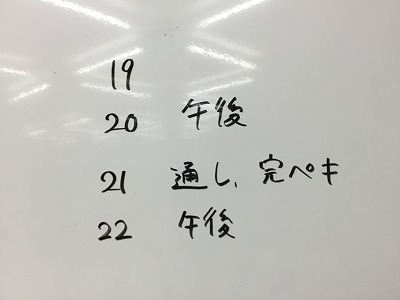 19
20 午後
21 通し、完ペキ
22 午後